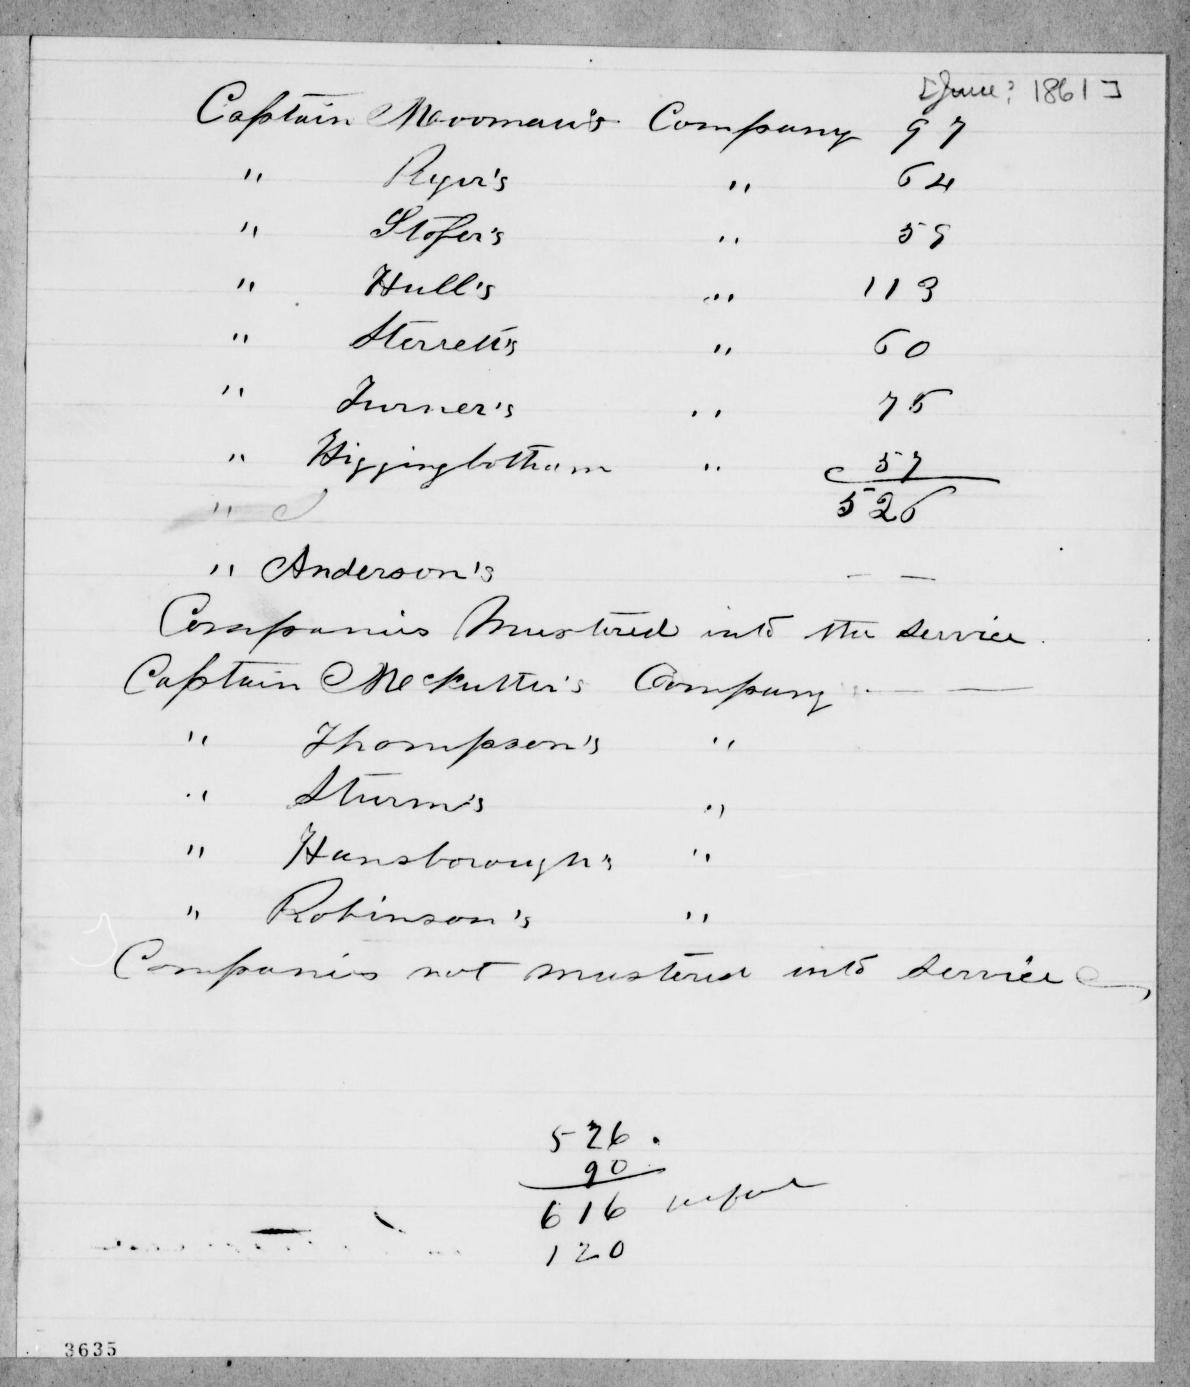 [June? 1861]
Captain Moorman's Company 97
" Ryer's " 64
" Stofer's " 59
" Hull's " 113
" Sterrett's " 60
" Turner's " 76
" Higginbotham " 57
526
"
" Anderson's — —
Companies Mustered into the service.
Captain McCutter's Company — —
" Thompson's "
" Sturm's "
" Hansborough's "
" Robinson's "
Companies not mustered into service
526.
90
616
120
3635